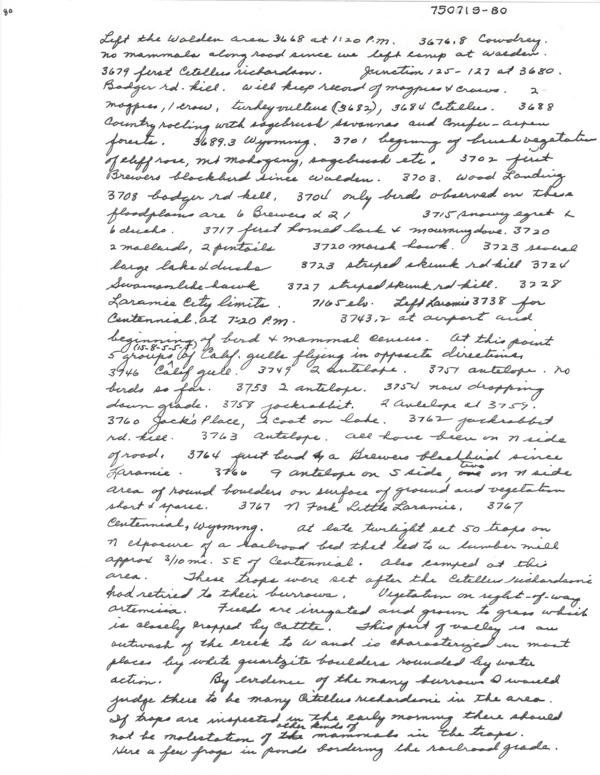 80
750719-80
Left the Walden area 3668 at 11:20 P.M. 3676.8 Cowdrey.
no mammals along road since we left camp at Walden.
3679 first Citellus richardson. Junction 125-127 at 3680.
Badger rd. kill. Will keep record of magpies & crows. 2
magpies, 1 crow, turkey vulture (3682), 3684 Citellus. 3688
Country rolling with sagebrush savannas and Conifer-aspen
forests. 3689.3 Wyoming. 3701 beginning of brush vegetation
of cliff rose, mt mahogany, sagebrush etc. 3702 first
Brewers blackbird since Walden. 3703. Wood Landing
3708 badger rd kill, 3704 only birds observed on these
floodplains are 6 Brewers & 21 3715 snowy egret &
6 ducks. 3717 first horned lark & mourning dove. 3720
2 mallards, 2 pintails 3720 marsh hawk. 3723 several
large lakes & ducks 3723 striped skunk rd kill 3724
Swainson like hawk 3727 striped skunk rd kill. 3728
Laramie City limits. 7165 elv. Left Laramie 3738 for
Centennial at 7:20 P.M. 3743.2 at airport and
beginning of bird & mammal census. At this point
5 groups (15-8-5-5-7) of Calif. gulls flying in opposite directions
3746 Calif gull. 3749 2 antelope. 3751 antelope. no
birds so far. 3753 2 antelope. 3754 now dropping
down grade. 3758 jackrabbit. 2 Antelope at 3759.
3760 Jack's Place, 2 coot on lake. 3762 jackrabbit
rd. kill. 3763 Antelope. All have been on N side
of road. 3764 first bird is a Brewers blackbird since
Laramie. 3766 9 antelope on S side, two on N side
area of round boulders on surface of ground and vegetation
short & sparse. 3767 N Fork Little Laramie. 3767
Centennial, Wyoming. At late twilight set 50 traps on
N exposure of a railroad bed that led to a lumber mill
approx 3/10 mi. SE of Centennial. Also camped at this
area. These traps were set after the Citellus richardsoni
had retired to their burrows. Vegetation on right-of-way
artemisia. Fields are irrigated and grown to grass which
is closely cropped by cattle. This part of valley is an
outwash of the creek to W and is characterized in most
places by white quartzite boulders rounded by water
action. By evidence of the many burrows I would
judge there to be many Citellus richardsoni in the area.
If traps are inspected in the early morning there should
not be molestation of other kinds of mammals in the traps.
Here a few frogs in ponds bordering the railroad grade.